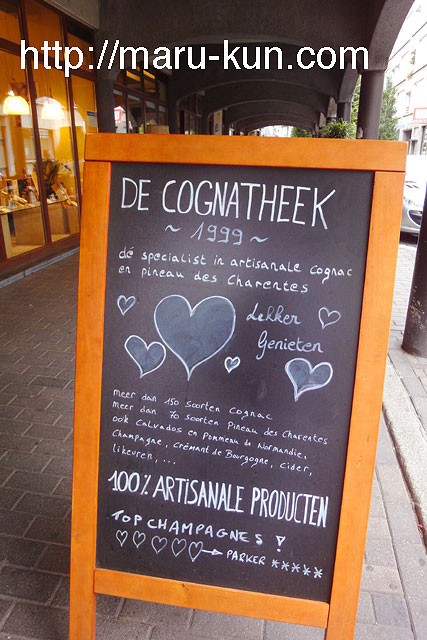 http://maru-kun.com
DE COGNATHEEK
~ 1999 ~
dé specialist in artisanale cognac
en pineau des Charentes
Lekker
Genieten
meer dan 150 soorten cognac
meer dan 70 soorten Pineau des Charentes
ook Calvados en Pommeau de Normandie,
Champagne, Crémant de Bourgogne, cider,
likeuren, ...
100% ARTISANALE PRODUCTEN
TOP CHAMPAGNES !
PARKER *****